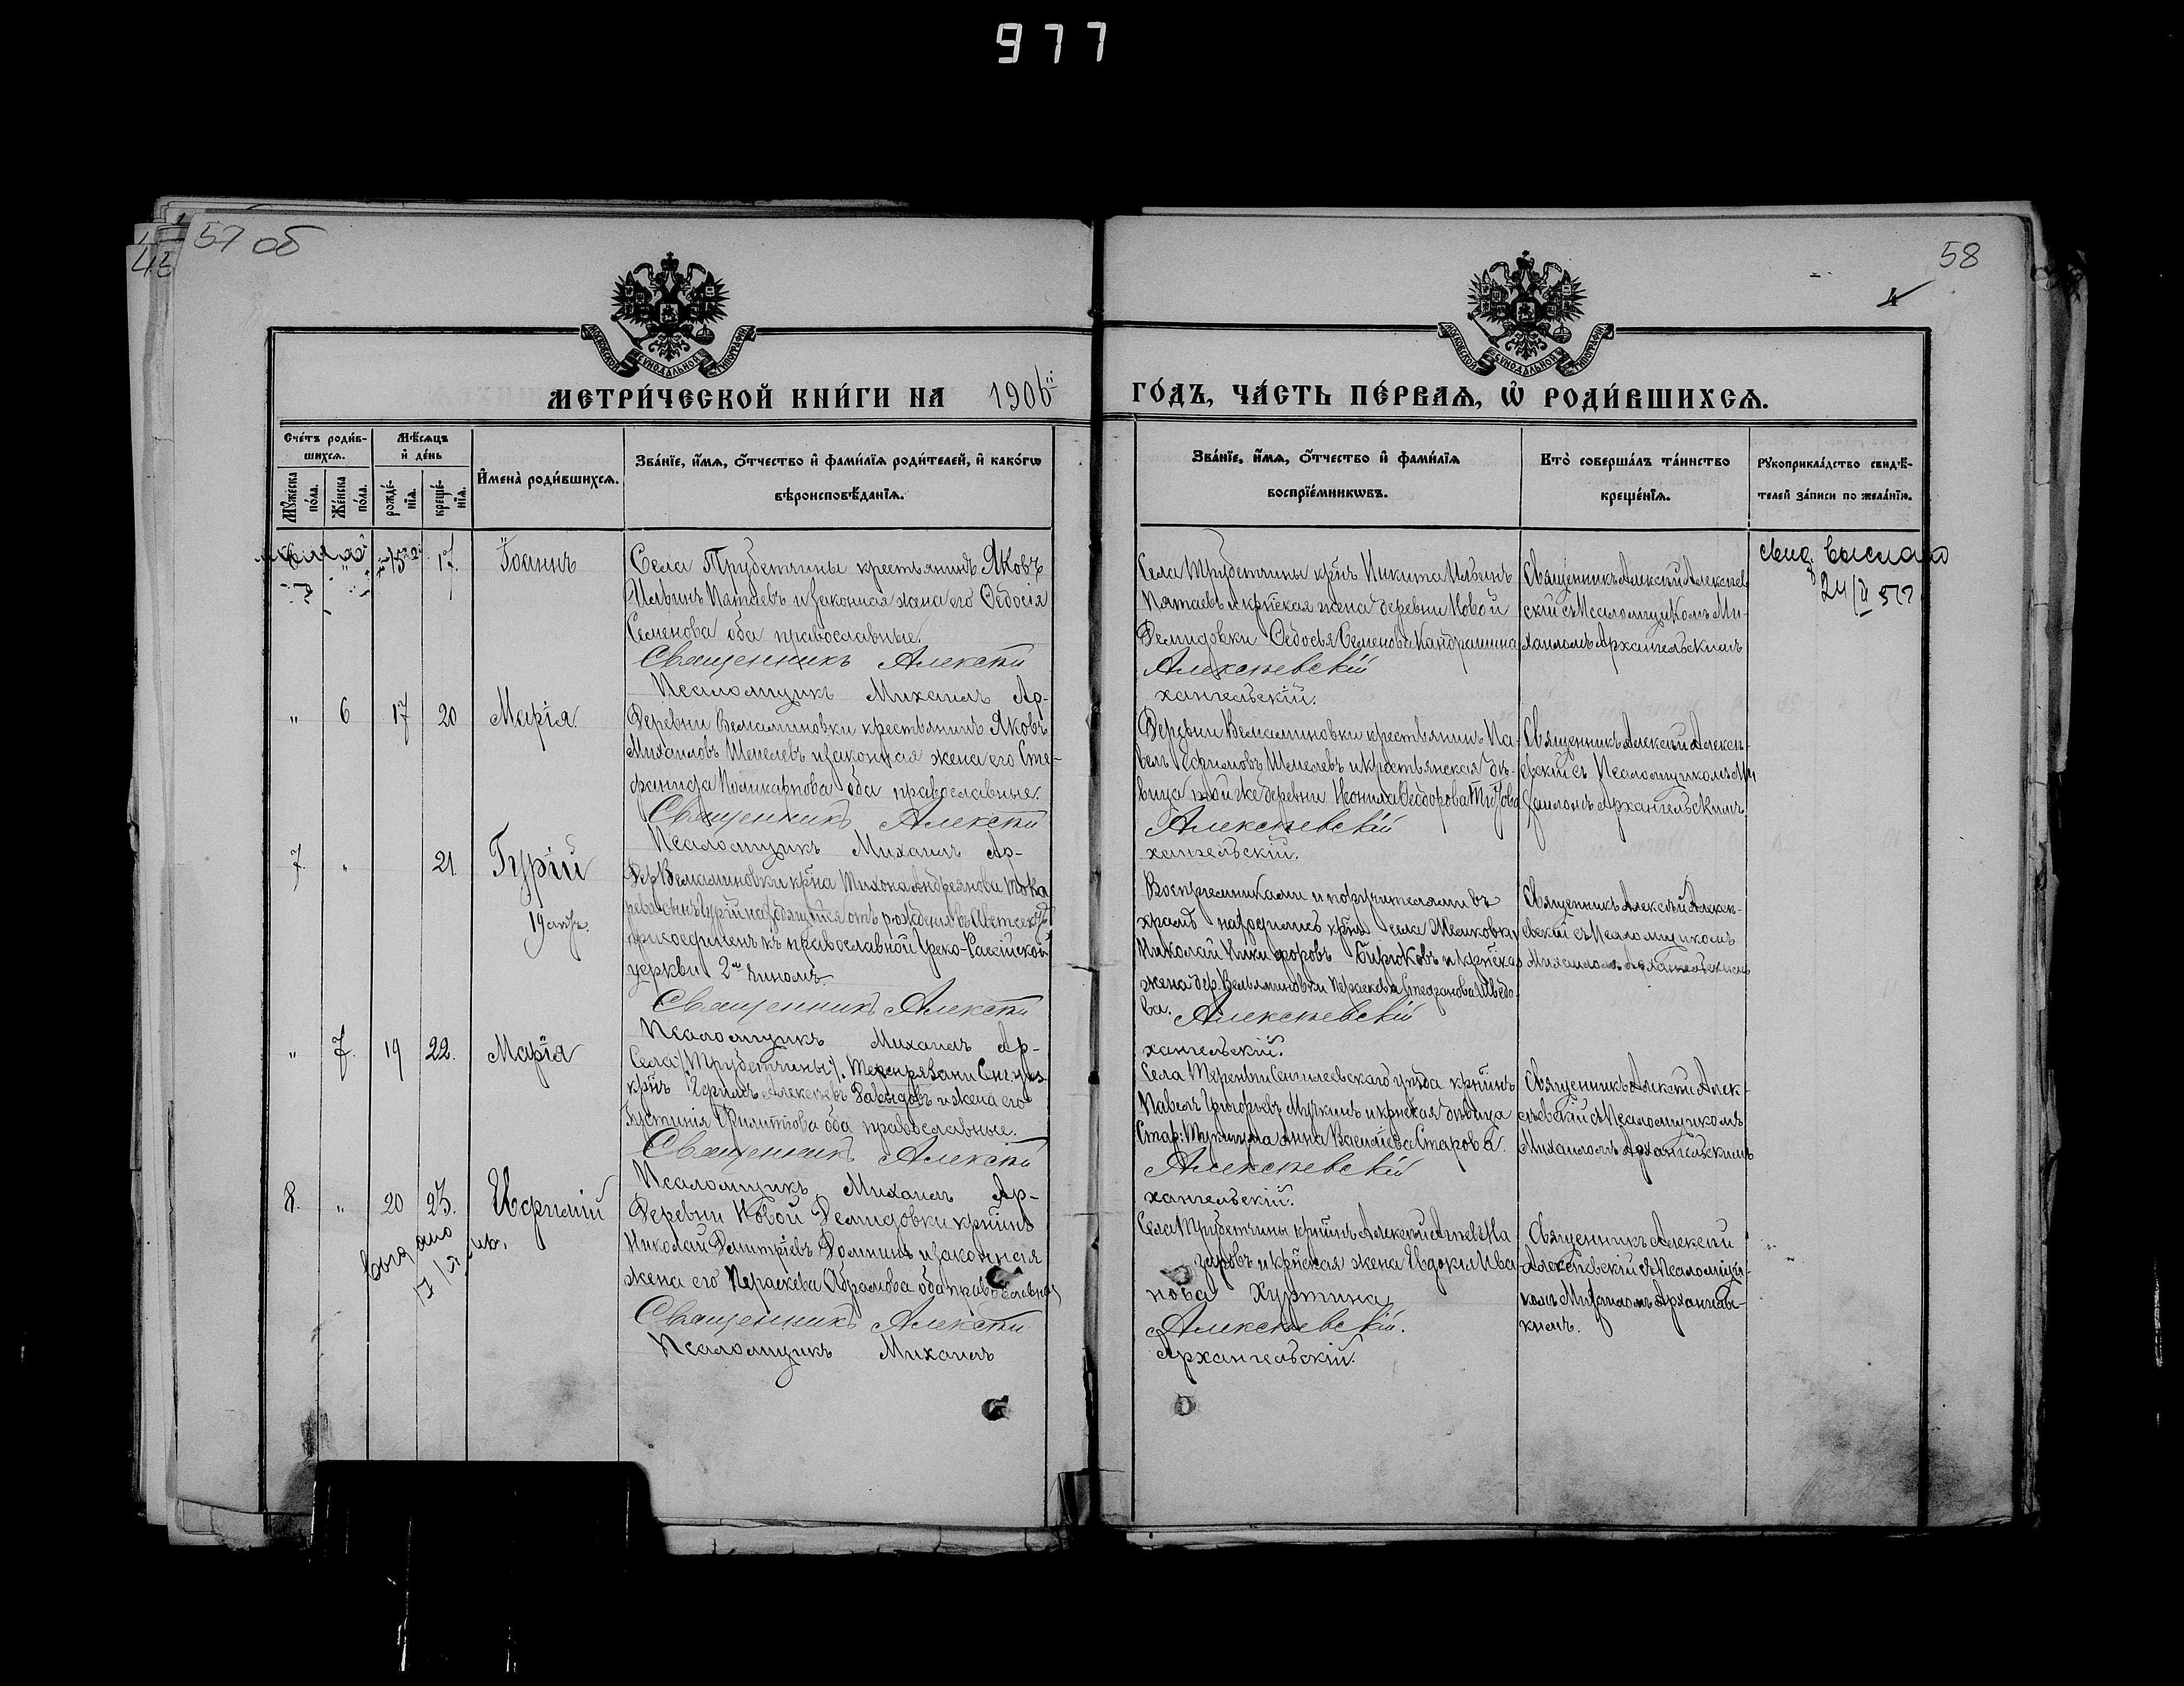 977
57 об
58
4
МОСКОВСКОЙ СѴНОДАЛЬНОЙ ТИПОГРАФІИ
МОСКОВСКОЙ СѴНОДАЛЬНОЙ ТИПОГРАФІИ
МЕТРИ́ЧЕСКОЙ КНИ́ГИ НА 1906й ГО́ДЪ, ЧА́СТЬ ПЕ́РВАѦ, Ѡ҆ РОДИ́ВШИХСѦ.
Сче́тъ роди́в-
шихсѧ.
Мѣ́сѧцъ
и҆ де́нь
Мꙋ́жеска по́ла.
Же́нска по́ла.
рожде́-нїѧ.
креще́-нїѧ.
И҆мена̀ роди́вшихсѧ.
Зва́нїе, и҆́мѧ, ѻ҆́тчество и҆ фами́лїѧ роди́телей, и҆ како́гѡ
вѣроисповѣ́данїѧ.
Зва́нїе, и҆́мѧ, ѻ҆́тчество и҆ фами́лїѧ
воспрїе́мникѡвъ.
Кто̀ соверша́лъ та́инство
креще́нїѧ.
Рꙋкоприкла́дство свидѣ́-
телей за́писи по жела́нїю.
17. Іоаннъ
Села Трубетчины крестьянинъ Яковъ
Ильинъ Пятаевъ и законная жена его Ѳедосія
Семенова оба православные.
Священникъ Алексѣй
Псаломщикъ Михаилъ Ар-
Села Трубетчины крнъ Никита Ильинъ
Пятаевъ и крнская жена деревни Новой
Демидовки Ѳедосья Семенова Кандрашина
Алексѣевскій
хангельскій.
Священникъ Алексѣй Алексѣев-
скій съ Псаломщикомъ Ми-
хаиломъ Архангельскимъ
свид. выслано
24/
" 6 17 20 Марія.
Деревни Вельаминовки крестьянинъ Яковъ
Михаиловъ Шемелевъ и законная жена его Сте-
фанида Поликарпова оба православные.
Священникъ Алексѣй
Псаломщикъ Михаилъ Ар-
Деревни Вельаминовки крестьянинъ Па-
велъ Ефимовъ Шемелевъ и крестьянская дѣ-
вица той же деревни Неонила Ѳеодорова
Алексѣевскій
хангельскій.
Священникъ Алексѣй Алексѣ-
евскій съ Псаломщикомъ Ми
хаиломъ Архангельскимъ.
7. " 21 Гурій
Дер. Вельаминовки крна Тихона Андреянова
отъ рожденія въ
присоединенъ къ православной Греко-Россійской
церкви 2мъ чиномъ.
Священникъ Алексѣй
Псаломщикъ Михаилъ Ар-
Воспріемниками и поручителями въ
храмѣ находились крнъ села
Николай Никифоровъ Бирюковъ и крнская
жена дер. Вельяминовки Параскева Степанова Шведо-
ва. Алексѣевскій
хангельскій.
Священникъ Алексѣй Алексѣ-
евскій съ Псаломщикомъ
Михаиломъ Архангельскимъ
" 7. 19 22. Марія
Села (Трубетчины).
крнъ Ефимъ Алексѣевъ Давыдовъ и жена его
Іустинія Филиппова оба православные.
Священникъ Алексѣй
Псаломщикъ Михаилъ Ар-
Села Сенгилеевскаго уѣзда крнинъ
Павелъ Григорьевъ Мучкинъ и крнская дѣвица
Анна Васильева Старова.
Алексѣевскій
хангельскій.
Священникъ Алексѣй Алек-
сѣевскій съ Псаломщикомъ
Михаиломъ Архангельскимъ
8. " 20 23.
выдано
Деревни Новой Демидовки крнинъ
Николай Дмитріевъ Доминъ и законная
жена его Параскева Абрамова оба православные
Священникъ Алексѣй
Псаломщикъ Михаилъ
Села Трубетчины крнинъ Алексѣй
и крнская жена Евдокія Ива-
нова Хуртина
Алексѣевскій.
Архангельскій.
Священникъ Алексѣй
Алексѣевскій съ Псаломщи-
комъ Михаиломъ Архангель-
скимъ.